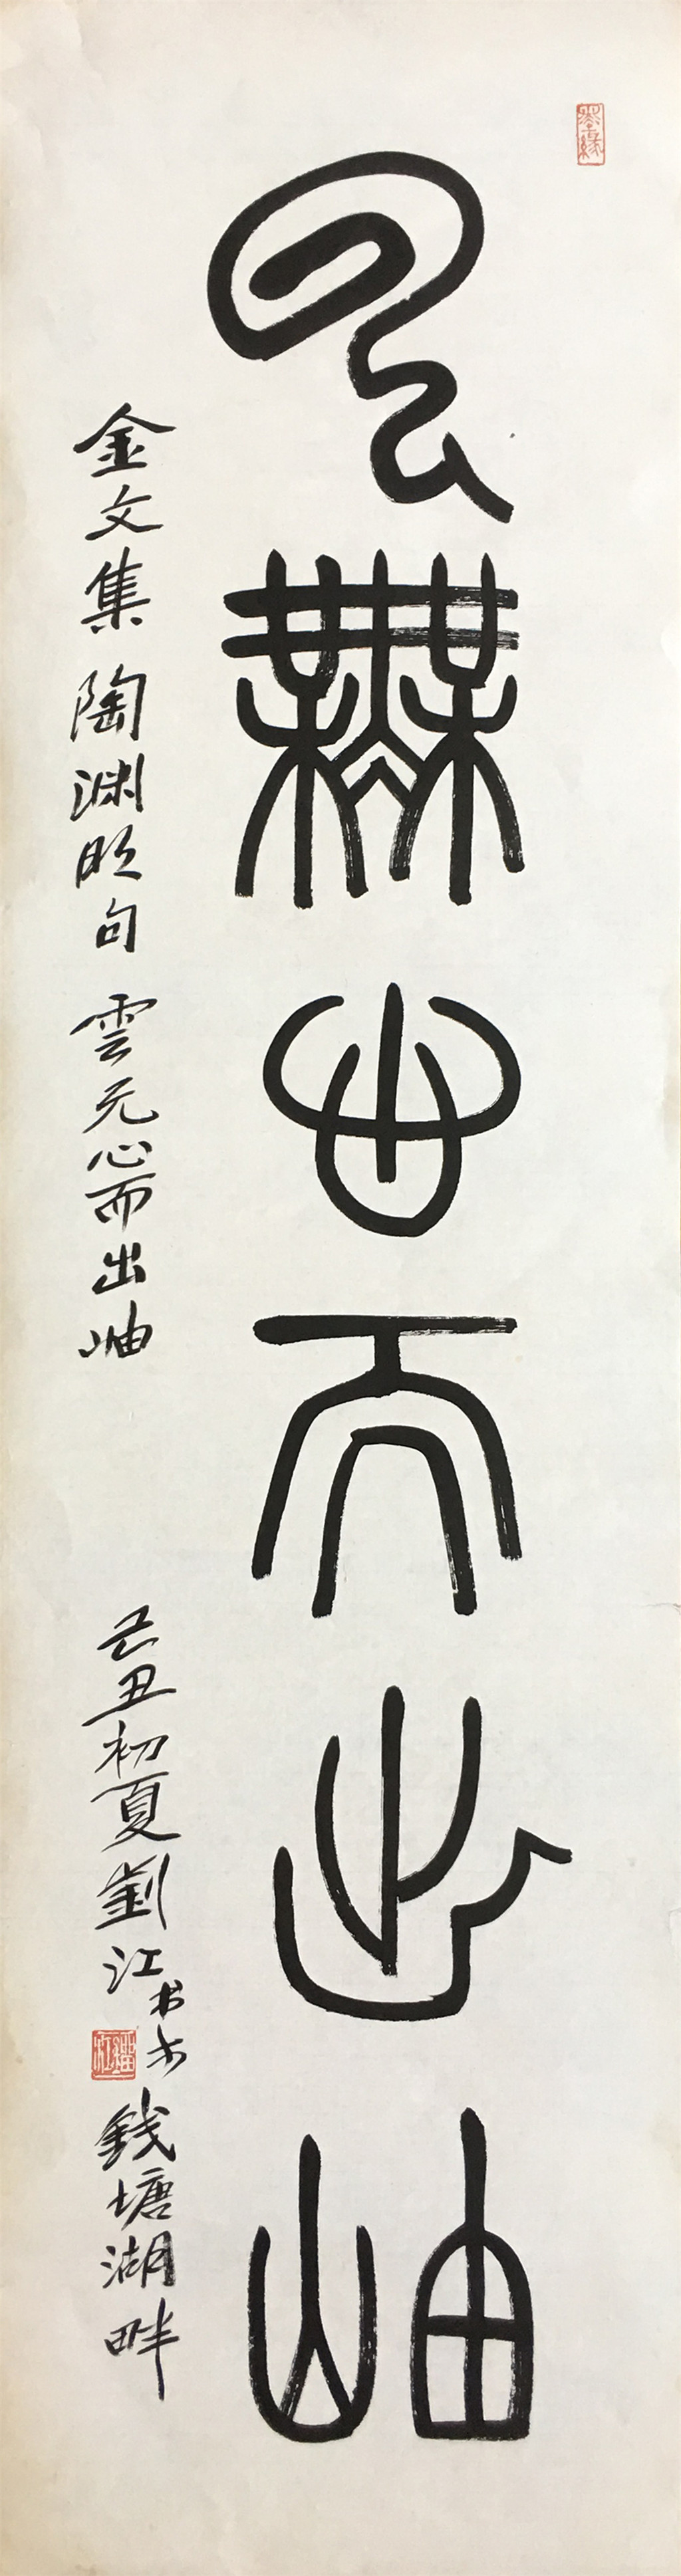 云無心而出岫
金文集陶渊明句雲无心而出岫
己丑初夏劉江书于钱塘湖畔
墨缘